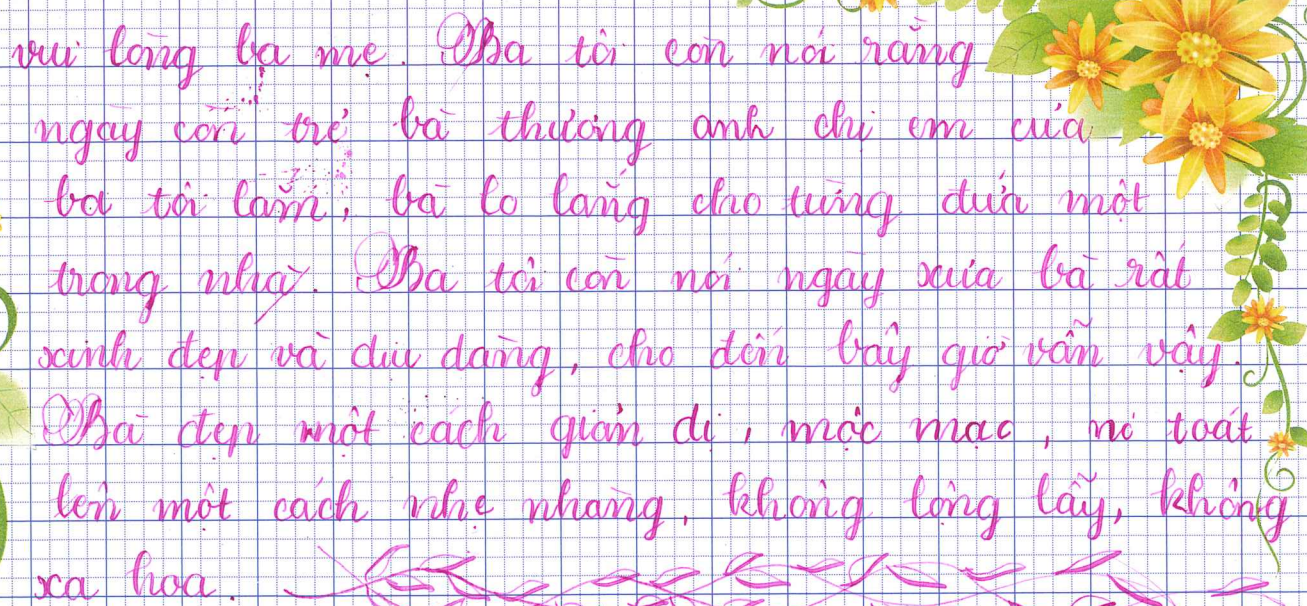 vui lòng ba mẹ. Ba tôi còn nói rằng
ngày còn trẻ bà thương anh chị em của
ba tôi lắm, bà lo lắng cho từng đứa một
trong nhà. Ba tôi còn nói ngày xưa bà rất
xinh đẹp và dịu dàng, cho đến bây giờ vẫn vậy.
Bà đẹp một cách giản dị, mộc mạc, nó toát
lên một cách nhẹ nhàng, không lộng lẫy, không
xa hoa.